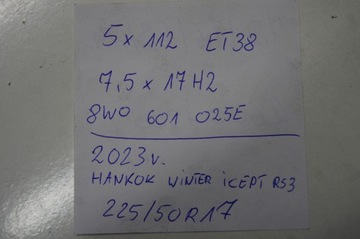 5 x 112 ET38
7,5 x 17 H2
8W0 601 025E
2023 v.
HANKOK WINTER ICEPT RS3
225/50R17